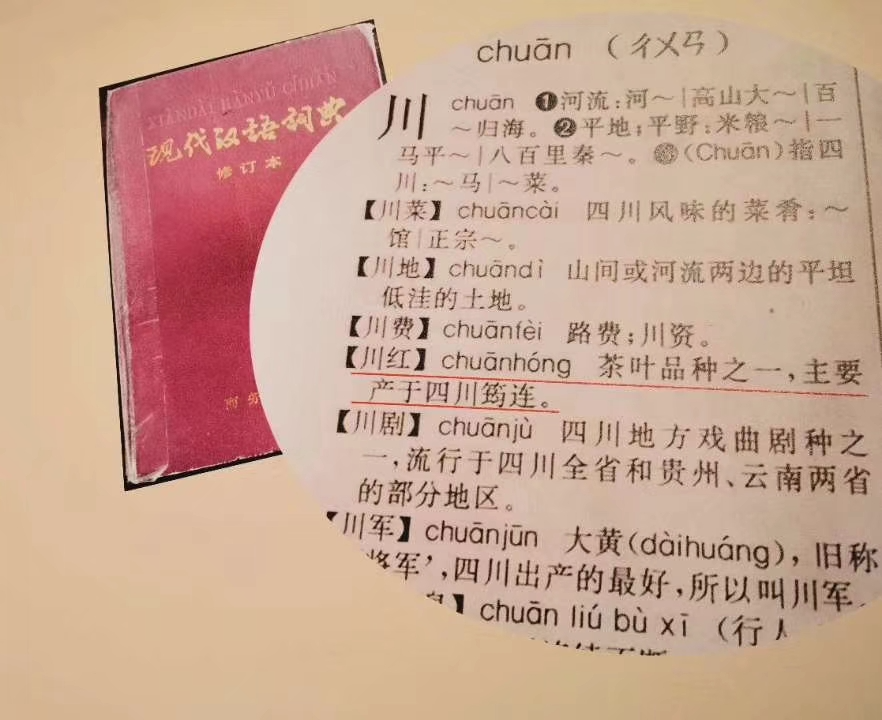 XIANDAI HANYU CIDIAN
现代汉语词典
修订本
chuān （ㄔㄨㄢ）
川 chuān ❶河流：河～｜高山大～｜百
～归海。❷平地；平野：米粮～｜一
马平～｜八百里秦～。❸（Chuān）指四
川：～马｜～菜。
【川菜】chuāncài 四川风味的菜肴：～
馆｜正宗～。
【川地】chuāndì 山间或河流两边的平坦
低洼的土地。
【川费】chuānfèi 路费；川资。
【川红】chuānhóng 茶叶品种之一，主要
产于四川筠连。
【川剧】chuānjù 四川地方戏曲剧种之
一，流行于四川全省和贵州、云南两省
的部分地区。
【川军】chuānjūn 大黄（dàihuáng），旧称
将军’，四川出产的最好，所以叫川军。
】chuān liú bù xī （行人